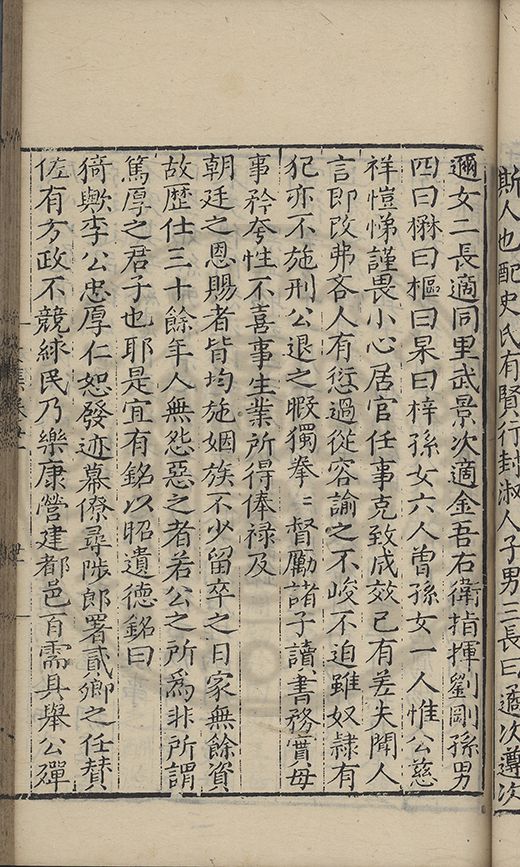 斯人也配史氏有賢行封淑人子男三長曰適次遵次
邇女二長適同里武景次適金吾右衛指揮劉剛孫男
四曰楙曰樞曰杲曰梓孫女六人曾孫女一人惟公慈
祥愷悌謹畏小心居官任事克致成效已有差夫聞人
言即改弗吝人有愆過從容諭之不峻不迫雖奴隷有
犯亦不施刑公退之暇獨拳〻督勵諸子讀書務實毋
事矜夸性不喜事生業所得俸禄及
朝廷之恩賜者皆均施姻族不少留卒之日家無餘資
故歴仕三十餘年人無怨惡之者若公之所爲非所謂
篤厚之君子也耶是宜有銘以昭遺德銘曰
猗歟李公忠厚仁恕發迹幕僚尋陟郎署貳卿之任賛
佐有方政不競絿民乃樂康營建都邑百需具舉公殫